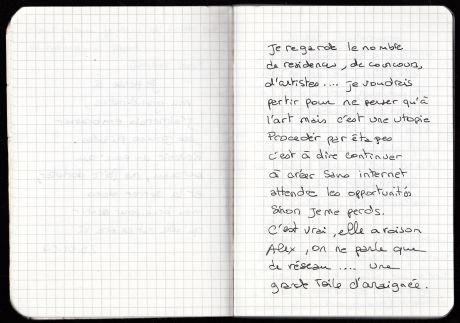 Je regarde le nombre
de residences, de concours,
d'artistes.... je voudrais
partir pour ne penser qu'à
l'art mais c'est une utopie
Proceder par étapes
c'est à dire continuer
à créer sans internet
attendre les opportunités
Sinon je me perds.
C'est vrai, elle a raison
Alex, on ne parle que
de réseau .... une
grande Toile d'araignée.